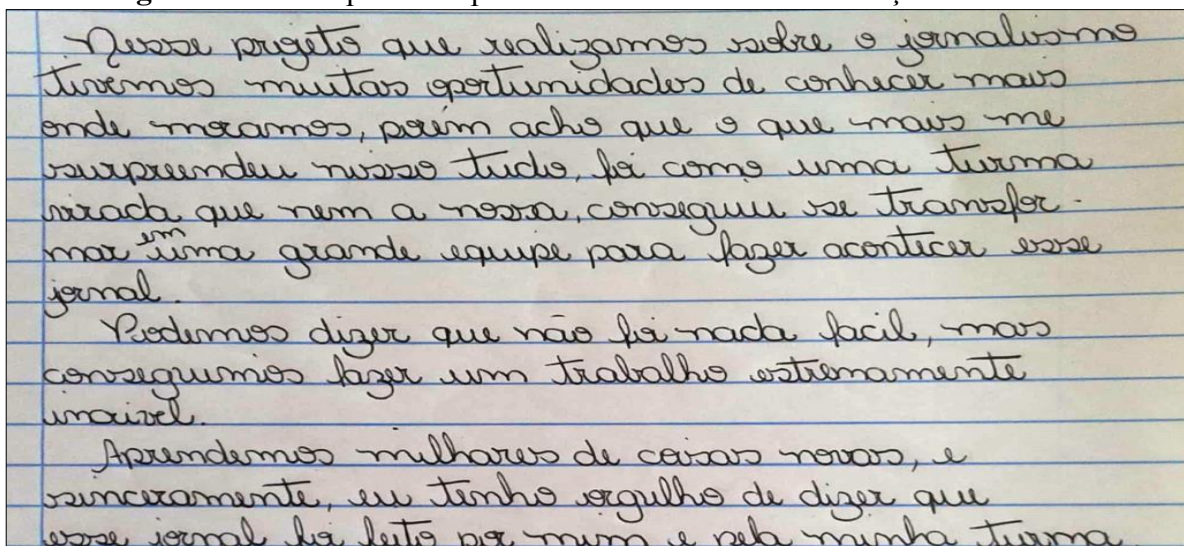 Nesse projeto que realizamos sobre o jornalismo
tivemos muitas oportunidades de conhecer mais
onde moramos, porém acho que o que mais me
surpreendeu nisso tudo, foi como uma turma
virada que nem a nossa, conseguiu se transfor-
mar em uma grande equipe para fazer acontecer esse
jornal.
Podemos dizer que não foi nada facil, mas
conseguimos fazer um trabalho estremamente
incrivel.
Aprendemos milhares de coisas novas, e
sinceramente, eu tenho orgulho de dizer que
esse jornal foi feito por mim e pela minha turma